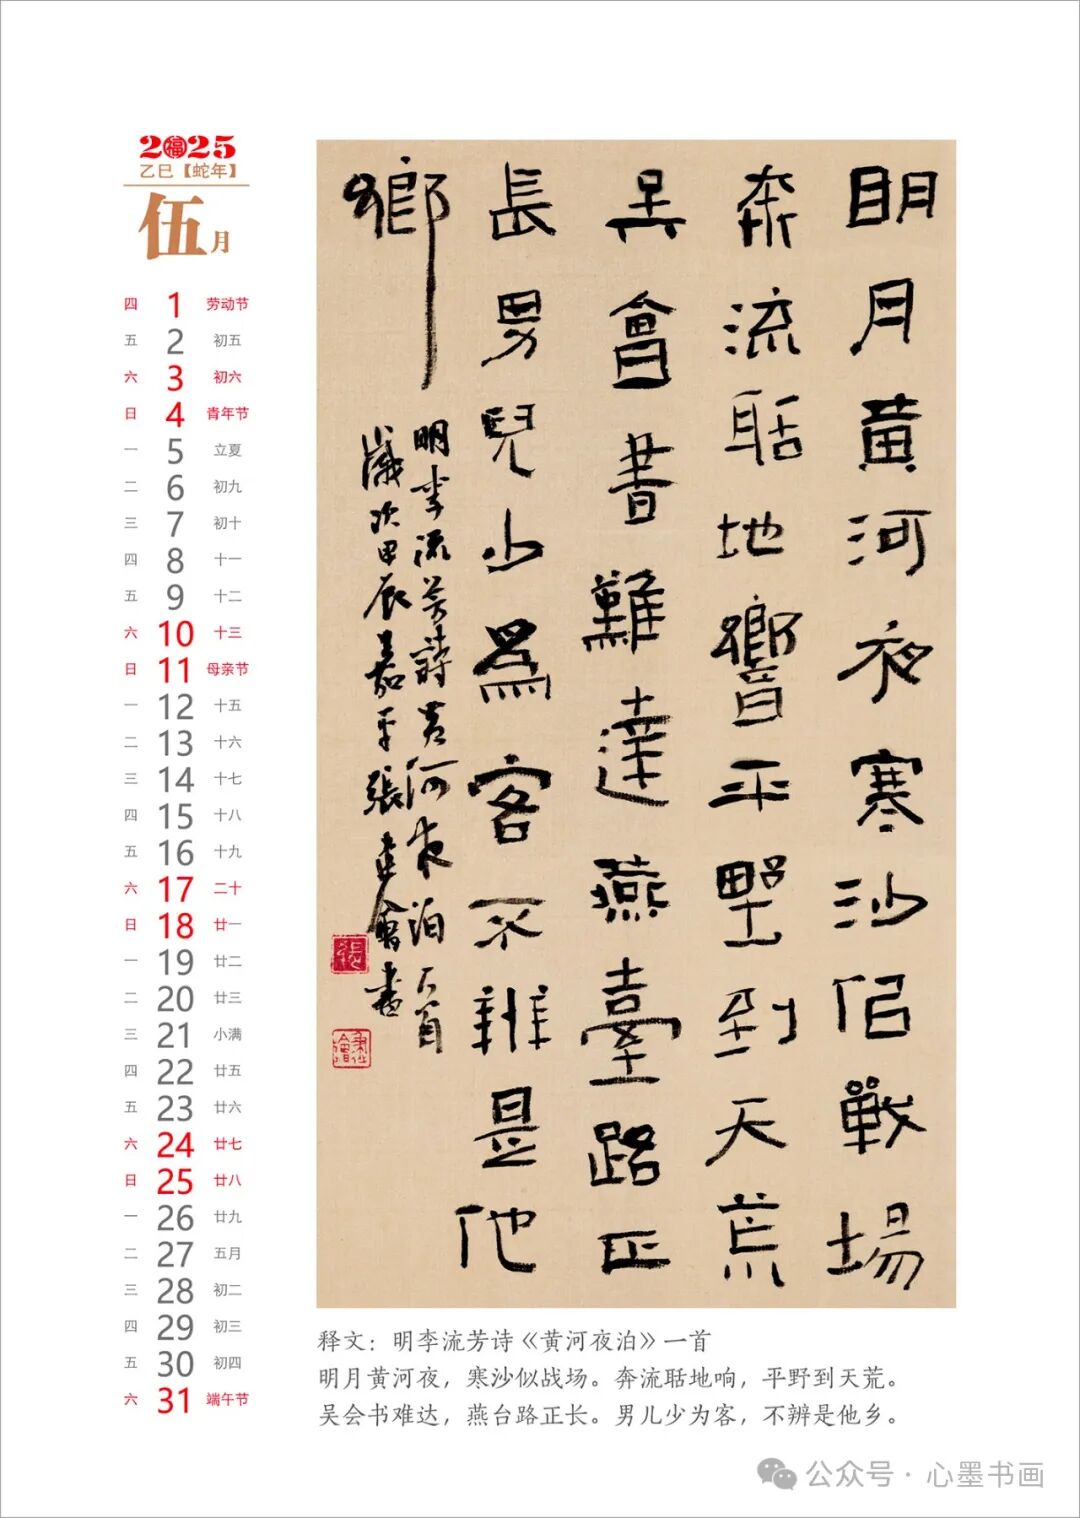 2025
乙巳【蛇年】
伍月
四 1 劳动节
五 2 初五
六 3 初六
日 4 青年节
一 5 立夏
二 6 初九
三 7 初十
四 8 十一
五 9 十二
六 10 十三
日 11 母亲节
一 12 十五
二 13 十六
三 14 十七
四 15 十八
五 16 十九
六 17 二十
日 18 廿一
一 19 廿二
二 20 廿三
三 21 小满
四 22 廿五
五 23 廿六
六 24 廿七
日 25 廿八
一 26 廿九
二 27 五月
三 28 初二
四 29 初三
五 30 初四
六 31 端午节
明月黄河夜寒沙佀戰場
奔流聒地響平野到天荒
吴會書難達燕臺路正
長男兒少為客不辨是他
鄉
明李流芳詩黄河夜泊一首
歲次甲辰嘉平張書
释文：明李流芳诗《黄河夜泊》一首
明月黄河夜，寒沙似战场。奔流聒地响，平野到天荒。
吴会书难达，燕台路正长。男儿少为客，不辨是他乡。
公众号·心墨书画